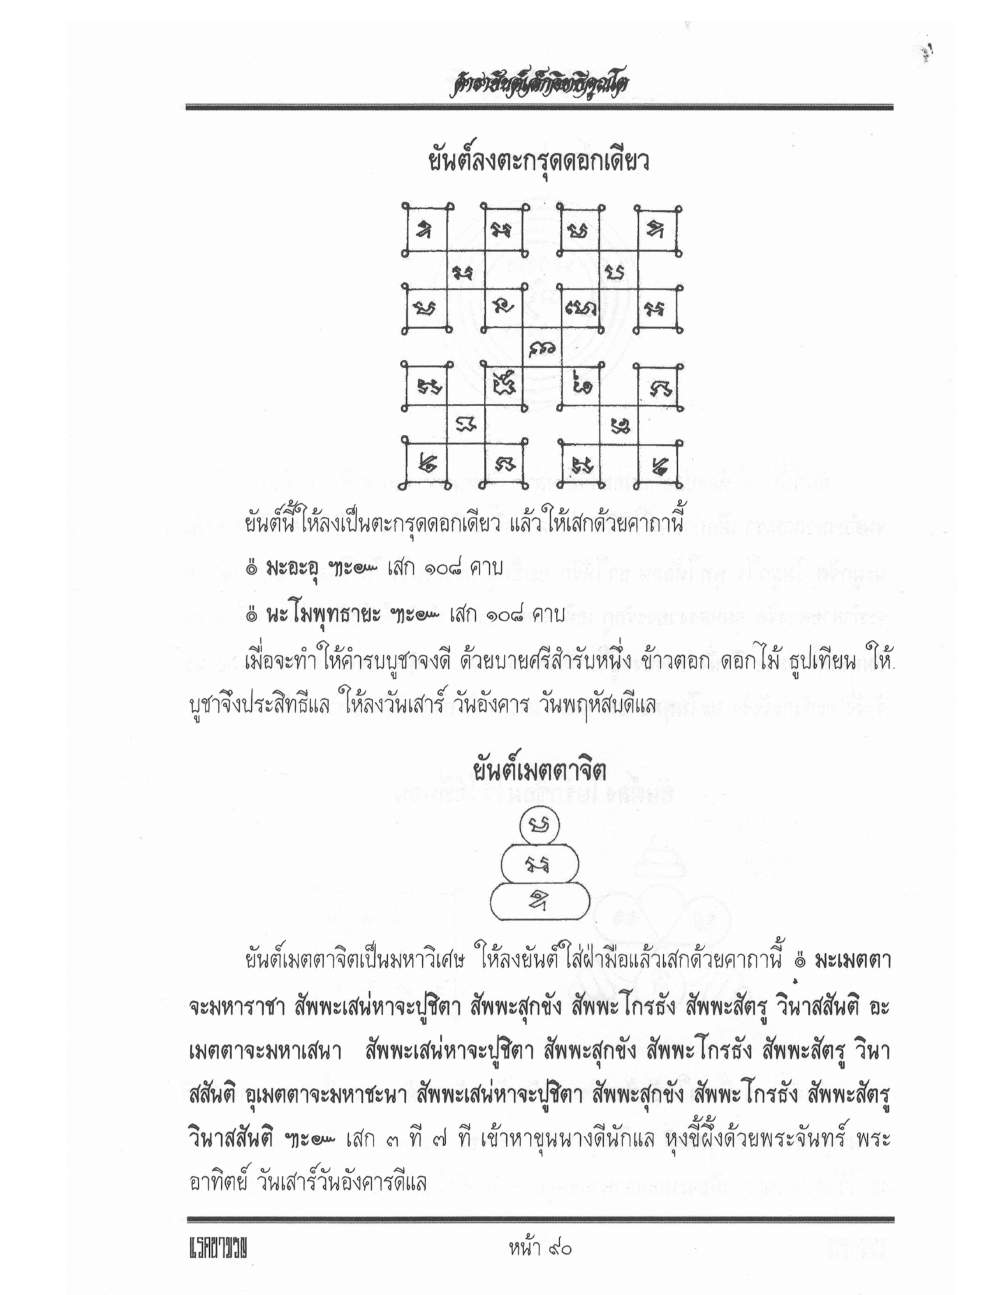 ยันต์ลงตะกรุดดอกเดียว
ยันต์นี้ให้ลงเป็นตะกรุดดอกเดียว แล้วให้เสกด้วยคาถานี้
๏ มะอะอุ ฯะ๛ เสก ๑๐๘ คาบ
๏ นะโมพุทธายะ ฯะ๛ เสก ๑๐๘ คาบ
เมื่อจะทำให้คำรบบูชาจงดี ด้วยบายศรีสำรับหนึ่ง ข้าวตอก ดอกไม้ ธูปเทียน ให้
บูชาจึงประสิทธีแล ให้ลงวันเสาร์ วันอังคาร วันพฤหัสบดีแล
ยันต์เมตตาจิต
ยันต์เมตตาจิตเป็นมหาวิเศษ ให้ลงยันต์ใส่ฝ่ามือแล้วเสกด้วยคาถานี้ ๏ มะเมตตา
จะมหาราชา สัพพะเสน่หาจะปูชิตา สัพพะสุกขัง สัพพะโกรธัง สัพพะสัตรู วินาสสันติ อะ
เมตตาจะมหาเสนา สัพพะเสน่หาจะปูชิตา สัพพะสุกขัง สัพพะโกรธัง สัพพะสัตรู วินา
สสันติ อุเมตตาจะมหาชะนา สัพพะเสน่หาจะปูชิตา สัพพะสุกขัง สัพพะโกรธัง สัพพะสัตรู
วินาสสันติ ฯะ๛ เสก ๓ ที ๗ ที เข้าหาขุนนางดีนักแล หุงขี้ผึ้งด้วยพระจันทร์ พระ
อาทิตย์ วันเสาร์วันอังคารดีแล
หน้า ๙๐